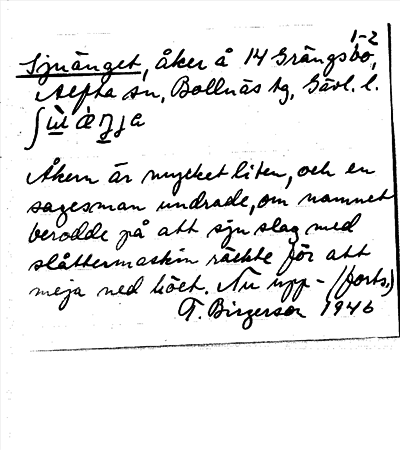 Sjuänget, åker å 14 Grängsbo, 1-2
Alfta sn, Bollnäs tg, Gävl. l.
Åkern är mycket liten, och en
sagesman undrade, om namnet
berodde på att sju slag med
slåttermaskin räckte för att
meja ned höet. Nu upp- (forts.)
F. Birgerson 1946